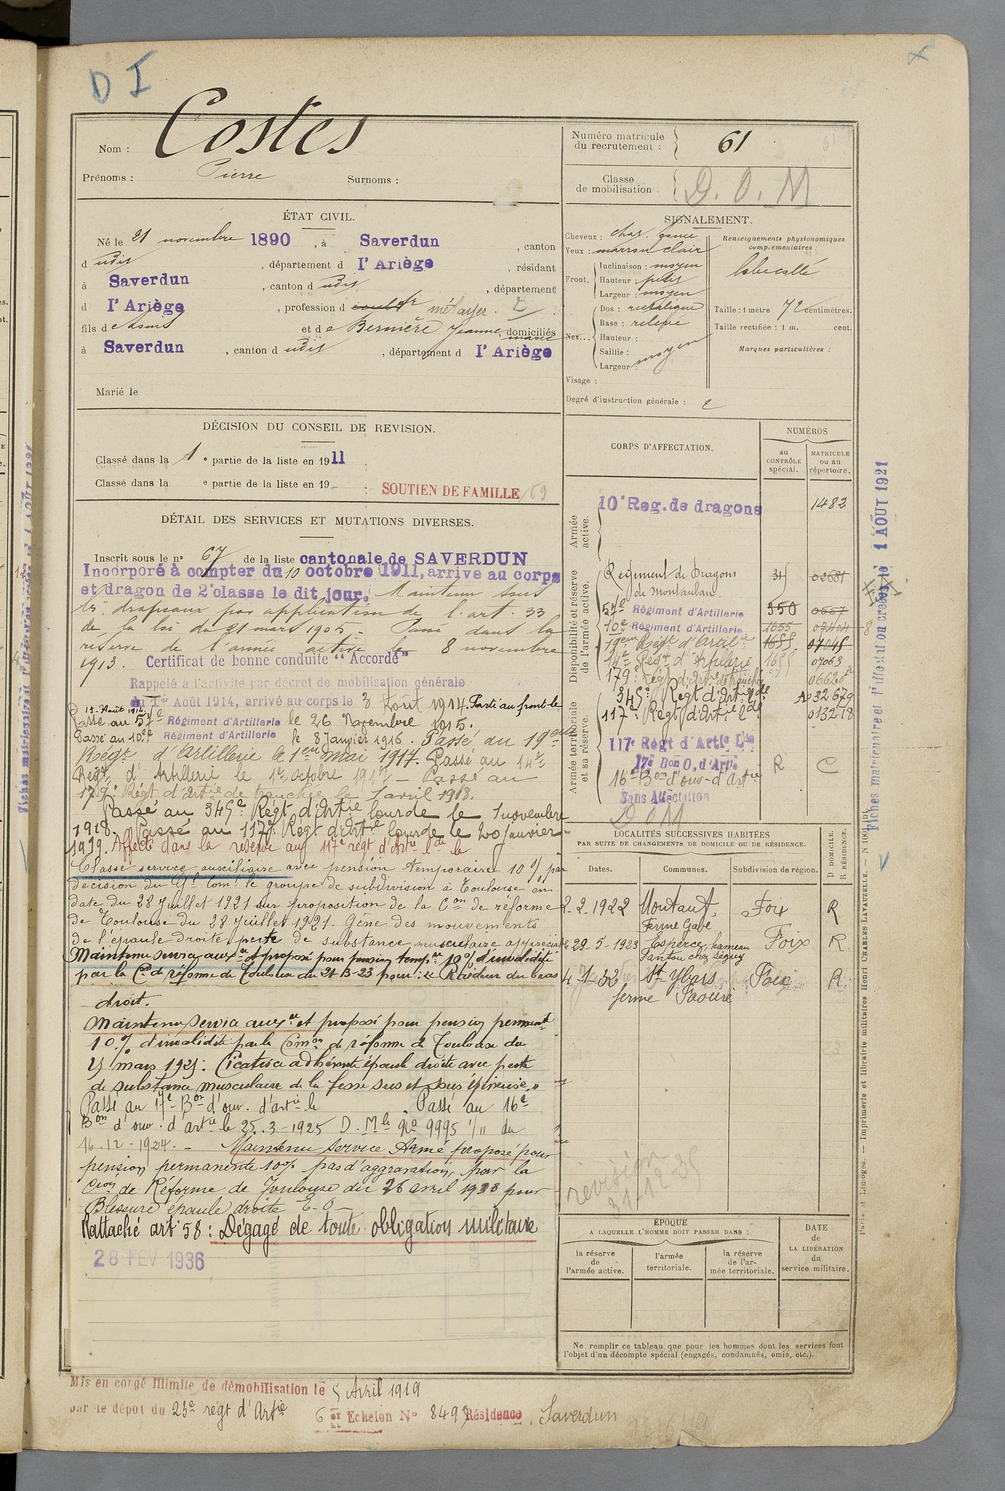 D I
Nom : Costes
Prénoms : Pierre Surnoms :
Numéro matricule du recrutement : 61
Classe de mobilisation : D. O. M
ÉTAT CIVIL.
Né le 21 novembre 1890, à Saverdun, canton
d udit, département d l'Ariège, résidant
à Saverdun, canton d udit, département
d l'Ariège, profession d métayer.
fils d et d e Jeanne domiciliés
à Saverdun, canton d udit, département d l'Ariège
Marié le
SIGNALEMENT.
Cheveux :
Yeux : marron clair
Front. Inclinaison : moyen
Hauteur : petit
Largeur : moyen
Nez... Dos : rectiligne
Base : relevée
Hauteur :
Saillie : moyen
Largeur :
Visage :
Degré d'instruction générale : 2
Renseignements physionomiques complémentaires :
Taille : 1 mètre 72 centimètres.
Taille rectifiée : 1 m. cent.
Marques particulières :
DÉCISION DU CONSEIL DE REVISION.
Classé dans la 1e partie de la liste en 1911
Classé dans la e partie de la liste en 19 : SOUTIEN DE FAMILLE 69
DÉTAIL DES SERVICES ET MUTATIONS DIVERSES.
Inscrit sous le n° 67 de la liste cantonale de SAVERDUN
Incorporé à compter du 10 octobre 1911, arrive au corps
et dragon de 2e classe le dit jour. Maintenu sous
les drapeaux par application de l'art. 33
de la loi du 21 mars 1905. Passé dans la
réserve de l'armée active le 8 novembre
1913. Certificat de bonne conduite "Accordé"
Rappelé à l'activité par décret de mobilisation générale
du 1er Août 1914, arrivé au corps le 3 Août 1914. Parti au front le
15 Août 1914.
Passé au 57e Régiment d'Artillerie le 26 Novembre 1915.
Passé au 10e Régiment d'Artillerie le 8 Janvier 1916. Passé au 19e
Régt d'Artillerie le 1er Mai 1917. Passé au 14e
Régt d'Artillerie le 1er octobre 1917 – Passé au
179e Régt d'Artie de tranchée le 1 avril 1918.
Passé au 345e Régt d'Artie lourde le 1 novembre
1918. Passé au 117e Régt d'Artie lourde le 20 janvier
1919. Affecté dans la réserve au 117e régt d'Artie Lde le
Classé service auxiliaire avec pension temporaire 10% par
décision du Gal Comt le groupe de subdivision à Toulouse en
date du 28 juillet 1921 sur proposition de la Con de réforme
de Toulouse du 28 juillet 1921. Gêne des mouvements
de l'épaule droite perte de substance musculaire appréciable
Maintenu service auxre et proposé pour pension tempre 10% d'invalidité
par la Con de réforme de Toulouse du pour : Raideur du bras
droit.
Maintenu service auxre et proposé pour pension permant
10% d'invalidité par la Comon de réforme de Toulouse du
mars 1925 : Cicatrice adhérente épaule droite avec perte
de substance musculaire de la fosse sus et sous épineuse.
Passé au 17e Bon d'ouv. d'artie le . Passé au 16e
Bon d'ouv. d'artie le 25.3-1925 D. Mle No 9995 1/11 du
16-12-1924. – Maintenu service Armé proposé pour
pension permanente 10% pas d'aggravation, par la
Con de Réforme de Toulouse du 26 avril 1933 pour
Blessure épaule droite E-O –
Rattaché art 58 : Dégagé de toute obligation militaire
28 FEV 1936
CORPS D'AFFECTATION.
NUMÉROS
au CONTRÔLE spécial.
MATRICULE ou au répertoire.
Armée active.
10e Reg. de dragons 1482
Disponibilité et réserve de l'armée active.
Régiment de Dragons de Montauban.
57e Régiment d'Artillerie 350
10e Régiment d'Artillerie 1655
19eme Régt d'Artie 1655
14e Régt d'Artillerie 1655 07063
179e Régt d'Artie tranchée
345e Régt d'Art. Lde
117e Régt d'Artie Lde 013278
Armée territoriale et sa réserve.
117e Régt d'Artie Lde
17e Bon O, d'Artie R C
16e Bon d'ouv d'Artie
Sans Affectation
DOM
LOCALITÉS SUCCESSIVES HABITÉES
PAR SUITE DE CHANGEMENTS DE DOMICILE OU DE RÉSIDENCE.
Dates. Communes. Subdivision de région. D DOMICILE. R RÉSIDENCE.
2.2.1922 Montaut, Ferme Gabé Foix R
29.5-1933 Esperce, hameau Foix R
4-1-33 St Ybars ferme Foix R
révision
31-12-35
ÉPOQUE
A LAQUELLE L'HOMME DOIT PASSER DANS :
la réserve de l'armée active.
l'armée territoriale.
la réserve de l'armée territoriale.
DATE DE LA LIBÉRATION du service militaire.
Ne remplir ce tableau que pour les hommes dont les services font
l'objet d'un décompte spécial (engagés, condamnés, omis, etc.).
Mis en congé illimité de démobilisation le 5 Avril 1919
par le dépôt du 23e régt d'Artie 6e Echelon No 849 Résidence, Saverdun
Paris et Limoges. — Imprimerie et librairie militaires Henri CHARLES-LAVAUZELLE.
Fiches matriculaire et d'affectation créées le 1 AOUT 1921